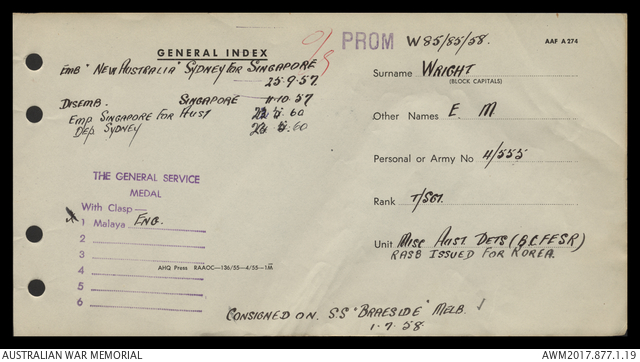 GENERAL INDEX
O/S PROM W85/85/58. AAF A 274
EMB "NEW AUSTRALIA" SYDNEY FOR SINGAPORE
25.9.57
DISEMB. SINGAPORE 11.10.57
EMP SINGAPORE FOR AUST .60
DEP SYDNEY .60
Surname WRIGHT
(BLOCK CAPITALS)
Other Names E. M
Personal or Army No 4/555
Rank T/SGT.
Unit MISC AUST DETS (B.C.F.E.S.R)
RASB ISSUED FOR KOREA.
THE GENERAL SERVICE
MEDAL
With Clasp—
1 Malaya ENG.
2
3
4
5
6
AHQ Press RAAOC—136/55—4/55—1M
CONSIGNED ON S.S "BRAESIDE" MELB.
1-7-58
AUSTRALIAN WAR MEMORIAL
AWM2017.877.1.19